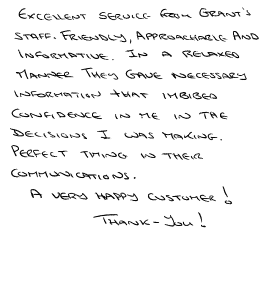 EXCELLENT SERVICE FROM GRANT'S
STAFF. FRIENDLY, APPROACHABLE AND
INFORMATIVE. IN A RELAXED
MANNER THEY GAVE NECESSARY
INFORMATION THAT IMBIBED
CONFIDENCE IN ME IN THE
DECISIONS I WAS MAKING.
PERFECT TIMING IN THEIR
COMMUNICATIONS.
A VERY HAPPY CUSTOMER!
THANK-YOU!